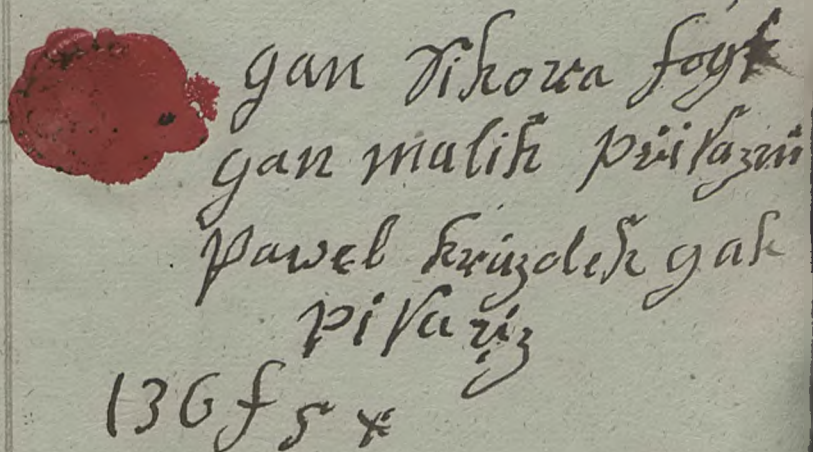 gan Sikora foyt
gan malik přiſazni
paweł kruzolek gak
piſarz
136 f 5 x